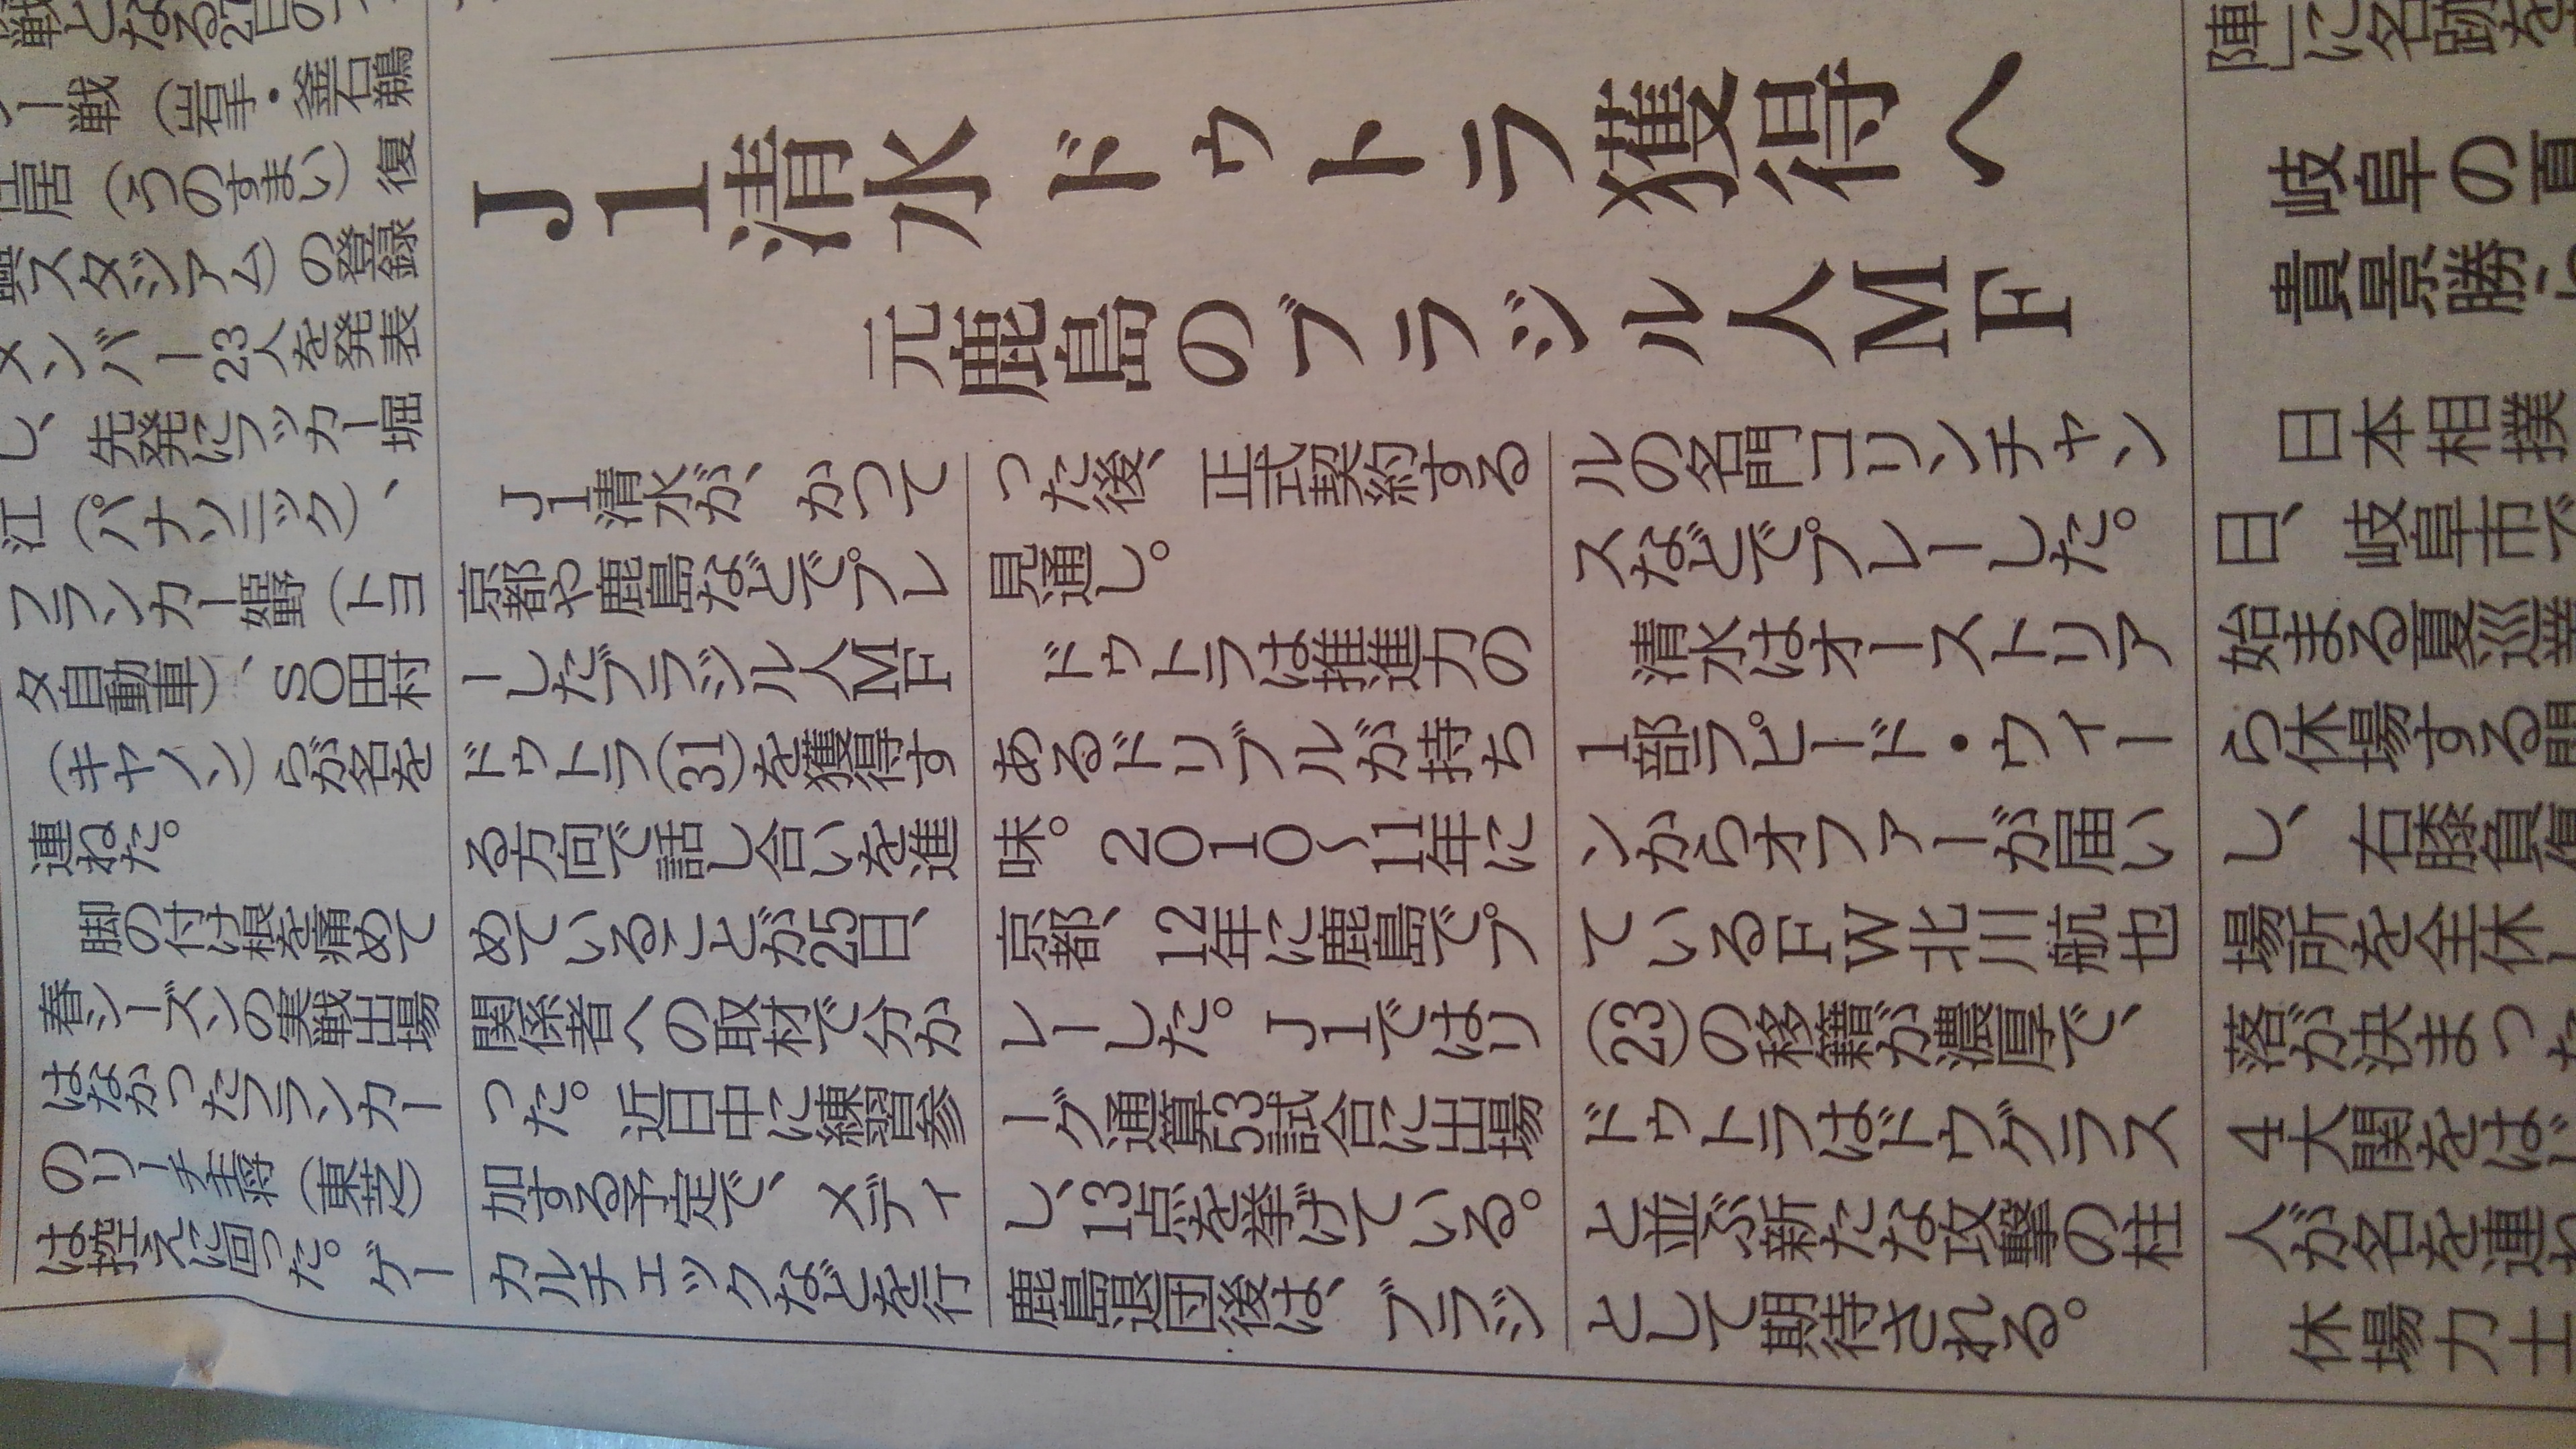 戦となる27日の
ー戦（岩手・釜石鵜
住居（うのすまい）復
興スタジアム）の登録
メンバー23人を発表
し、先発にフッカー堀
江（パナソニック）、
フランカー姫野（トヨ
タ自動車）、SO田村
（キヤノン）らが名を
連ねた。
脚の付け根を痛めて
春シーズンの実戦出場
はなかったフランカー
のリーチ主将（東芝）
は控えに回った。ゲー
J1清水ドゥトラ獲得へ
元鹿島のブラジル人MF
J1清水が、かつて
京都や鹿島などでプレ
ーしたブラジル人MF
ドゥトラ(31)を獲得す
る方向で話し合いを進
めていることが25日、
関係者への取材で分か
った。近日中に練習参
加する予定で、メディ
カルチェックなどを行
った後、正式契約する
見通し。
ドゥトラは推進力の
あるドリブルが持ち
味。2010〜11年に
京都、12年に鹿島でプ
レーした。J1ではリ
ーグ通算53試合に出場
し、13点を挙げている。
鹿島退団後は、ブラジ
ルの名門コリンチャン
スなどでプレーした。
清水はオーストリア
1部ラピード・ウィー
ンからオファーが届い
ているFW北川航也
(23)の移籍が濃厚で、
ドゥトラはドウグラス
と並ぶ新たな攻撃の柱
として期待される。
陣」に名跡を
岐阜の夏
貴景勝
日本相撲
日、岐阜市で
始まる夏巡業
ら休場する関
し、右膝負傷
場所を全休し
落が決まった
4大関をはじ
人が名を連ね
休場力士